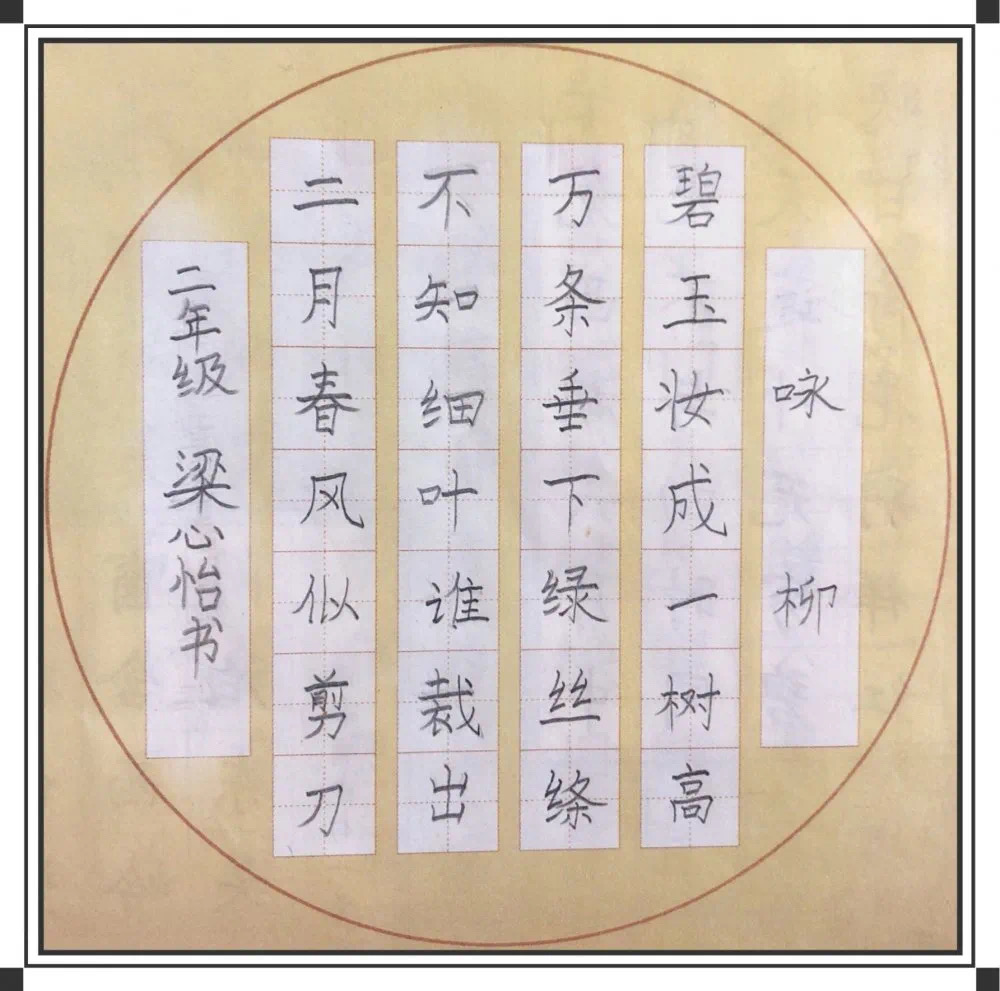 咏柳
碧玉妆成一树高
万条垂下绿丝绦
不知细叶谁裁出
二月春风似剪刀
二年级 梁心怡书